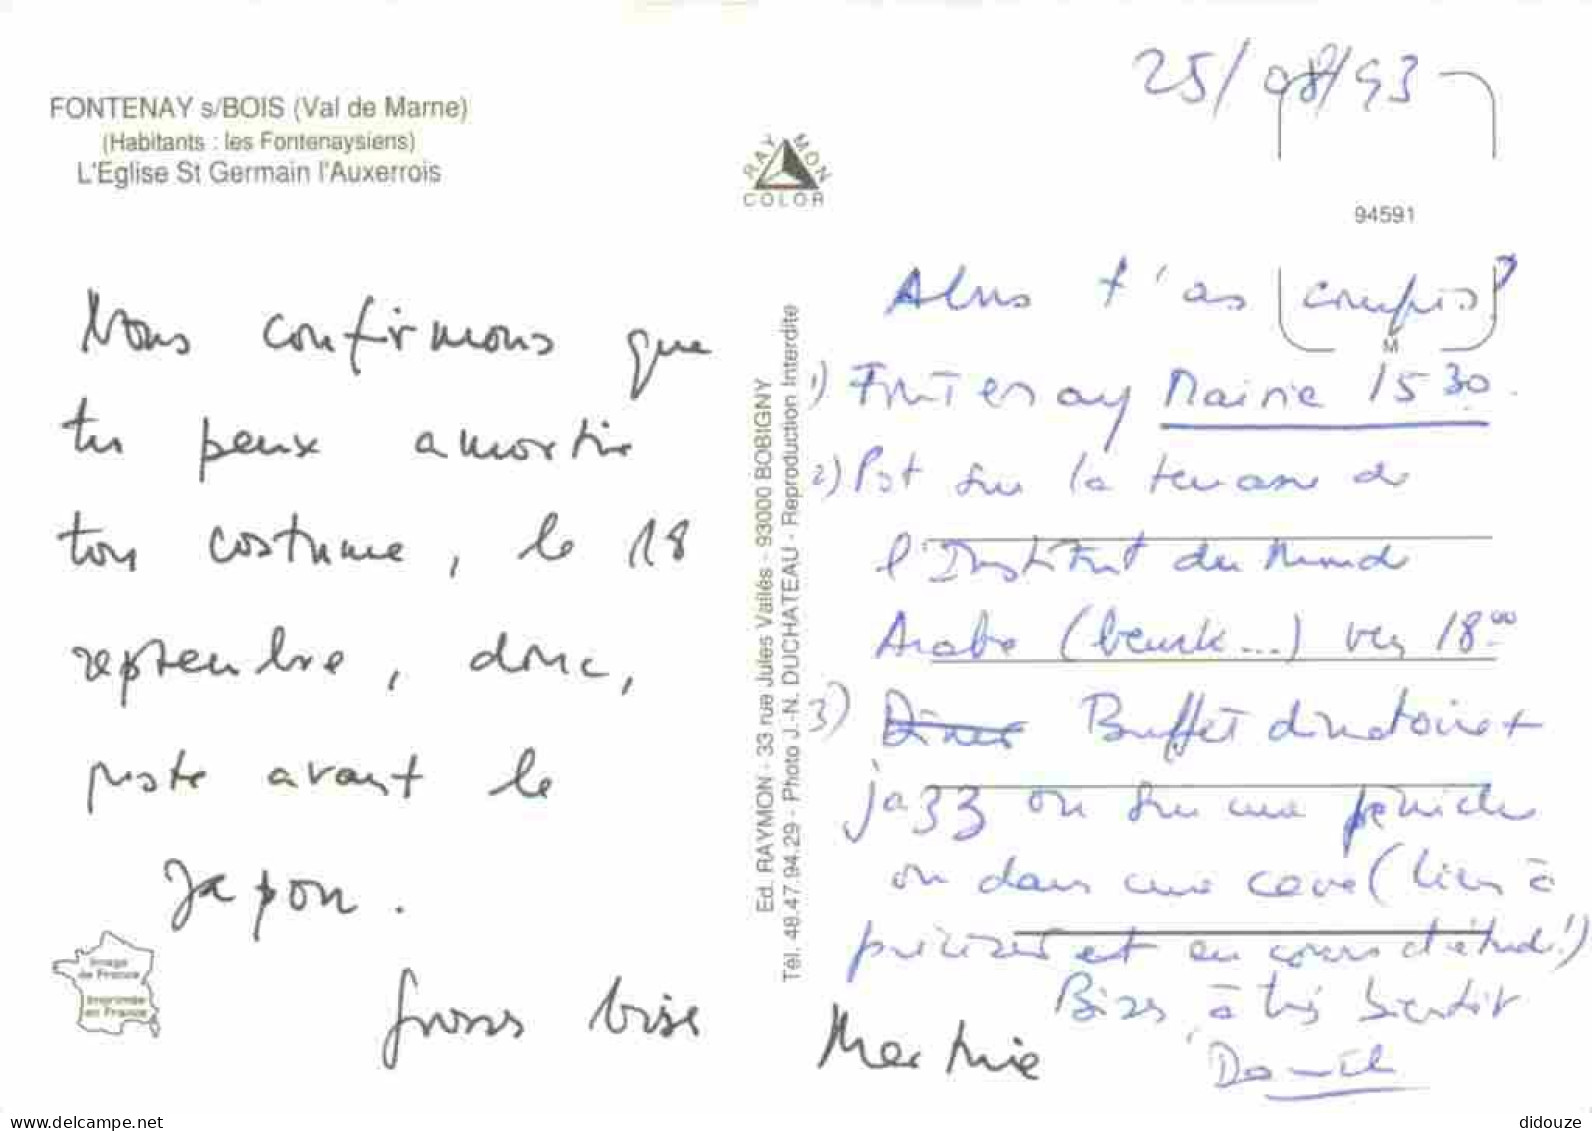 25/08/93
FONTENAY s/BOIS (Val de Marne)
(Habitants : les Fontenaysiens)
L'Eglise St Germain l'Auxerrois
RAYMON
COLOR
94591
M
Nous confirmons que
tu peux amortir
ton costume, le 18
septembre, donc,
juste avant le
Japon.
Grosses bises
Martine
Image
de France
Imprimée
en France
Ed. RAYMON - 33 rue Jules Vallès - 93000 BOBIGNY
Tél. 48.47.94.29 - Photo J.-N. DUCHATEAU - Reproduction Interdite
Alors t'as compris?
1) Fontenay Mairie 15 30.
2) Pot sur la terrasse de
l'Institut du Monde
Arabe (beurk...) vers 18 00
3) Diner Buffet dinatoire +
jazz ou sur une péniche
ou dans une cave (lieu à
préciser et en cours d'étude!)
Bises, à très bientôt
Daniel
delcampe.net
didouze